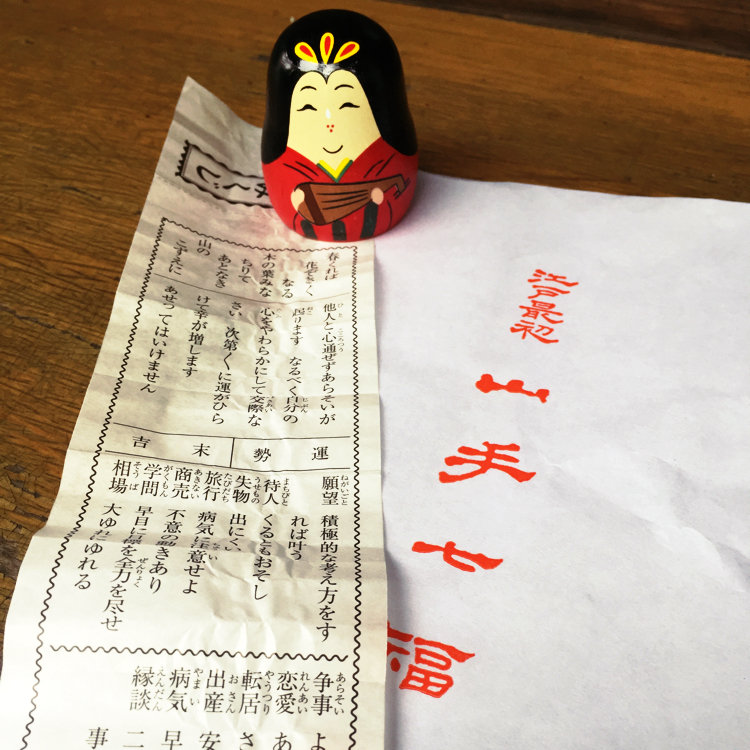 くじ
春くれば
花ぞさく
なる
木の葉みな
ちりて
あとなき
山の
こずえに
他人と心通ぜずあらそいが
起ります なるべく自分の
心をやわらかにして交際な
さい 次第くに運がひら
けて幸が増します
あせってはいけません
運勢
末吉
願望 積極的な考え方をす
れば叶う
待人 くるともおそし
失物 出にくい
旅行 病気に注意せよ
商売 不意の動きあり
学問 早目に標を全力を尽せ
相場 大ゆれにゆれる
争事 よ
恋愛 あ
転居 さ
出産 安
病気 早
縁談 二
事
江戸最初
山手七福